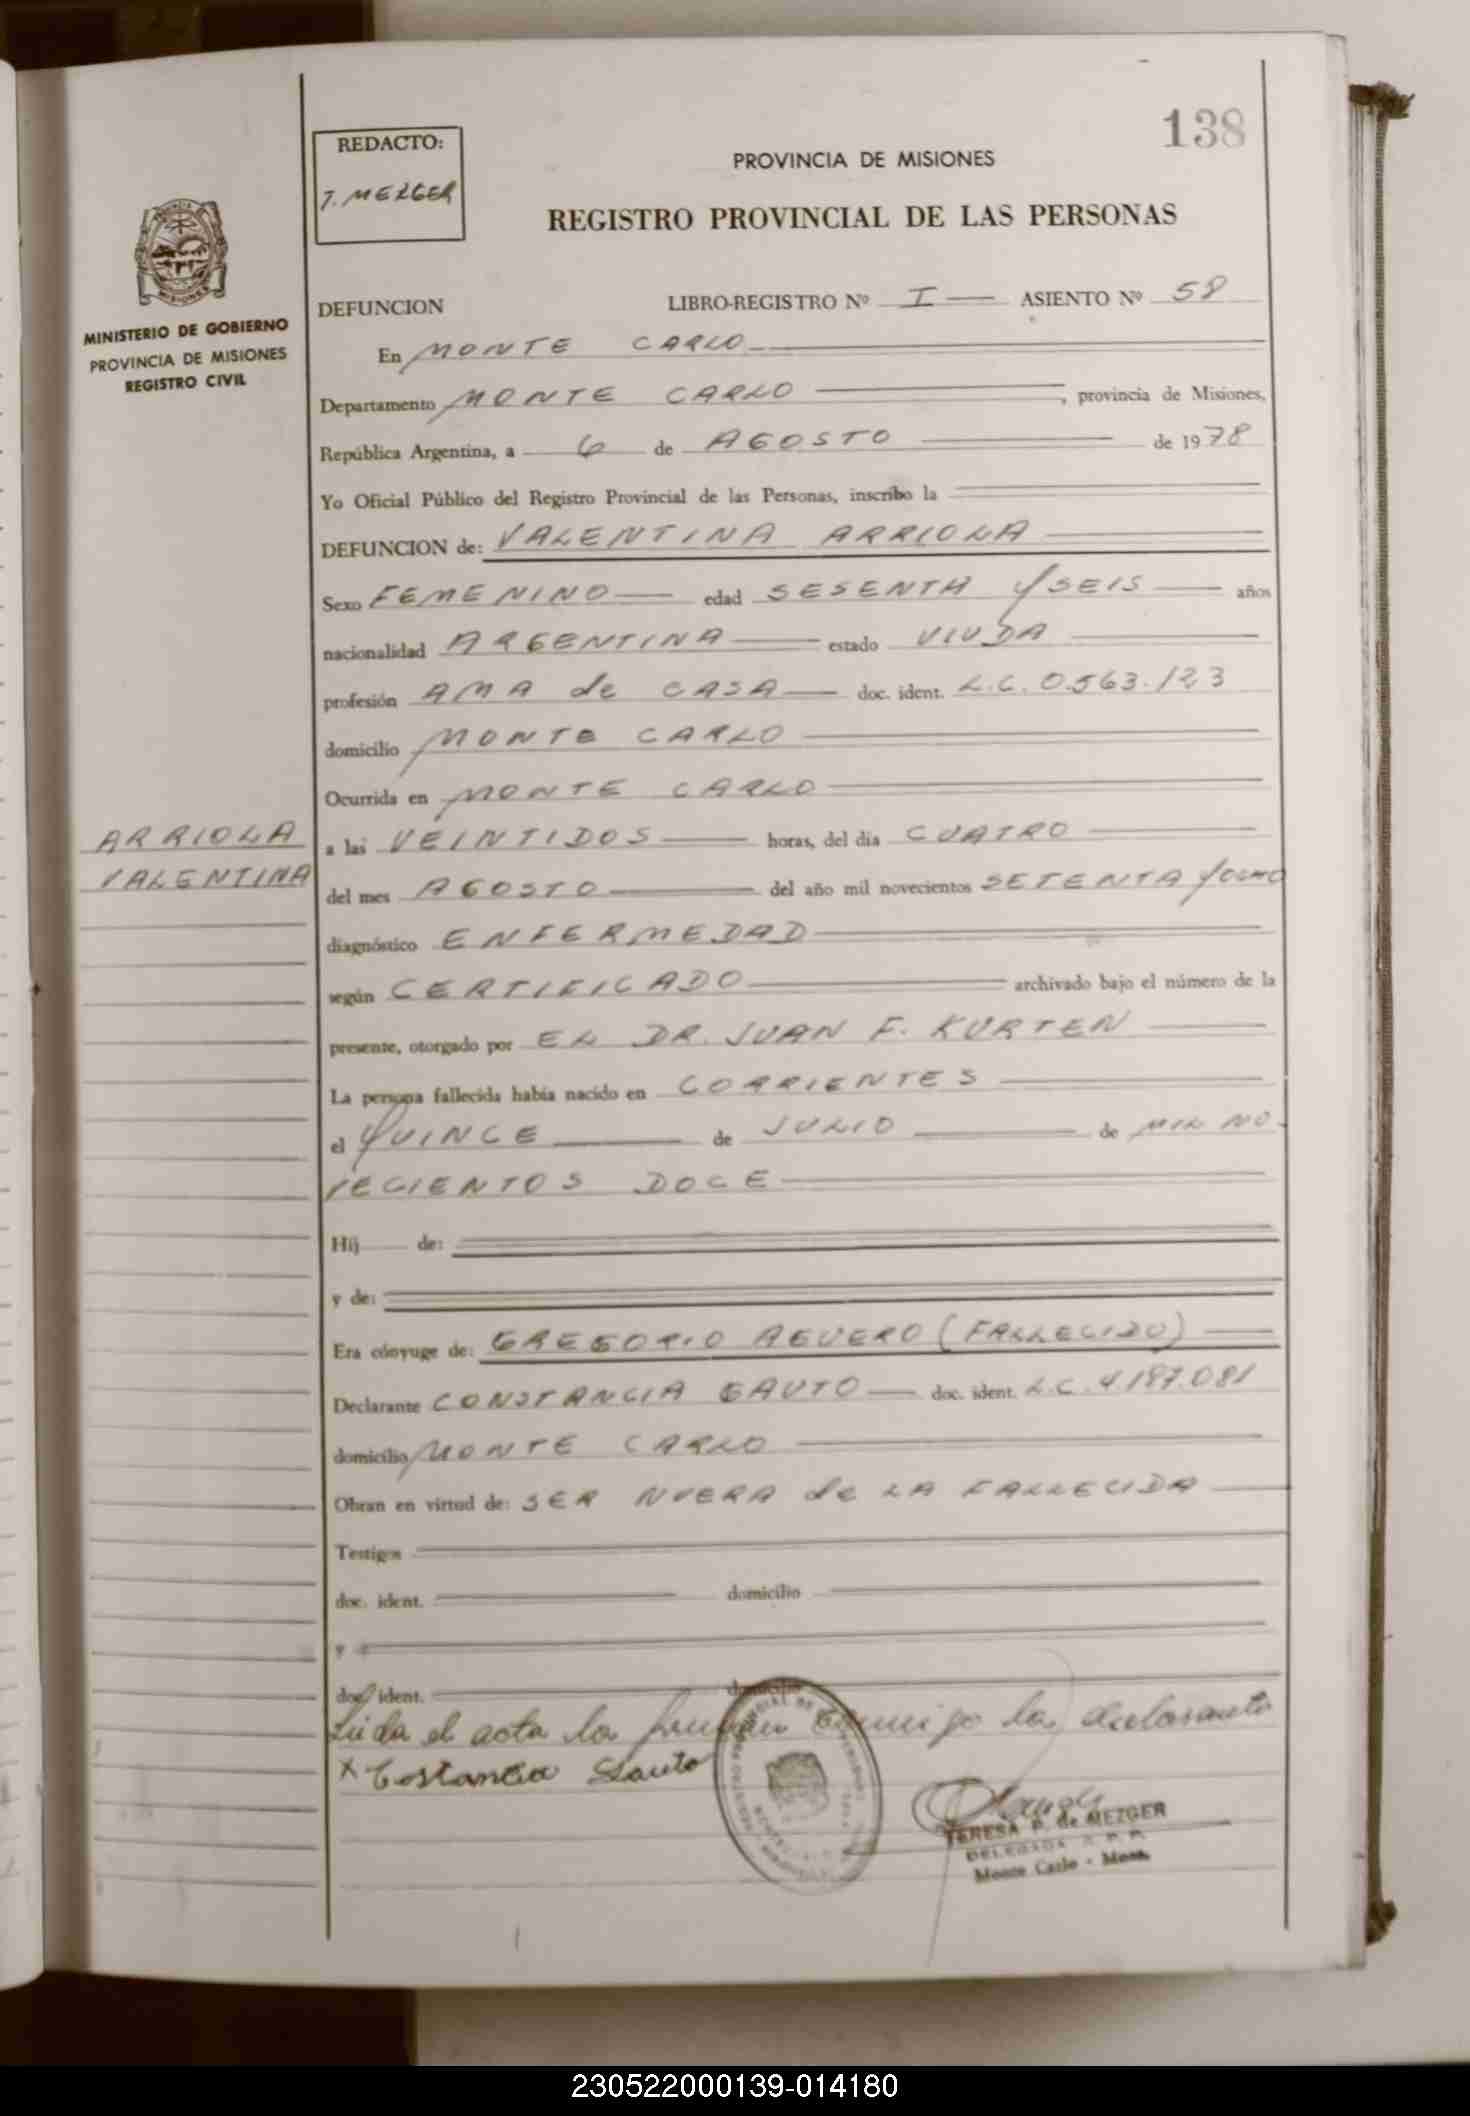 138
REDACTO:
T. MEZGER
PROVINCIA DE MISIONES
REGISTRO PROVINCIAL DE LAS PERSONAS
MINISTERIO DE GOBIERNO
PROVINCIA DE MISIONES
REGISTRO CIVIL
DEFUNCION LIBRO-REGISTRO Nº I ASIENTO Nº 58
En MONTE CARLO
Departamento MONTE CARLO, provincia de Misiones,
República Argentina, a 6 de AGOSTO de 1978
Yo Oficial Público del Registro Provincial de las Personas, inscribo la
DEFUNCION de: VALENTINA ARRIOLA
Sexo FEMENINO edad SESENTA Y SEIS años
nacionalidad ARGENTINA estado VIUDA
profesión AMA de CASA doc. ident. L.C. 0.563.123
domicilio MONTE CARLO
Ocurrida en MONTE CARLO
ARRIOLA
VALENTINA
a las VEINTIDOS horas, del día CUATRO
del mes AGOSTO del año mil novecientos SETENTA Y OCHO
diagnóstico ENFERMEDAD
según CERTIFICADO archivado bajo el número de la
presente, otorgado por EL DR. JUAN F. KURTEN
La persona fallecida había nacido en CORRIENTES
el QUINCE de JULIO de MIL NO-
VECIENTOS DOCE
Hij de:
y de:
Era cónyuge de: GREGORIO AGUERO (FALLECIDO)
Declarante CONSTANCIA GAUTO doc. ident. L.C. 4.187.081
domicilio MONTE CARLO
Obran en virtud de: SER NUERA de LA FALLECIDA
Testigos
doc. ident. domicilio
y
doc. ident. domicilio
Leida el acta la firman conmigo la declarante
x Costancia Gauto
TERESA P. de MEZGER
DELEGADA R. P. P.
Monte Carlo - Mnes.
230522000139-014180